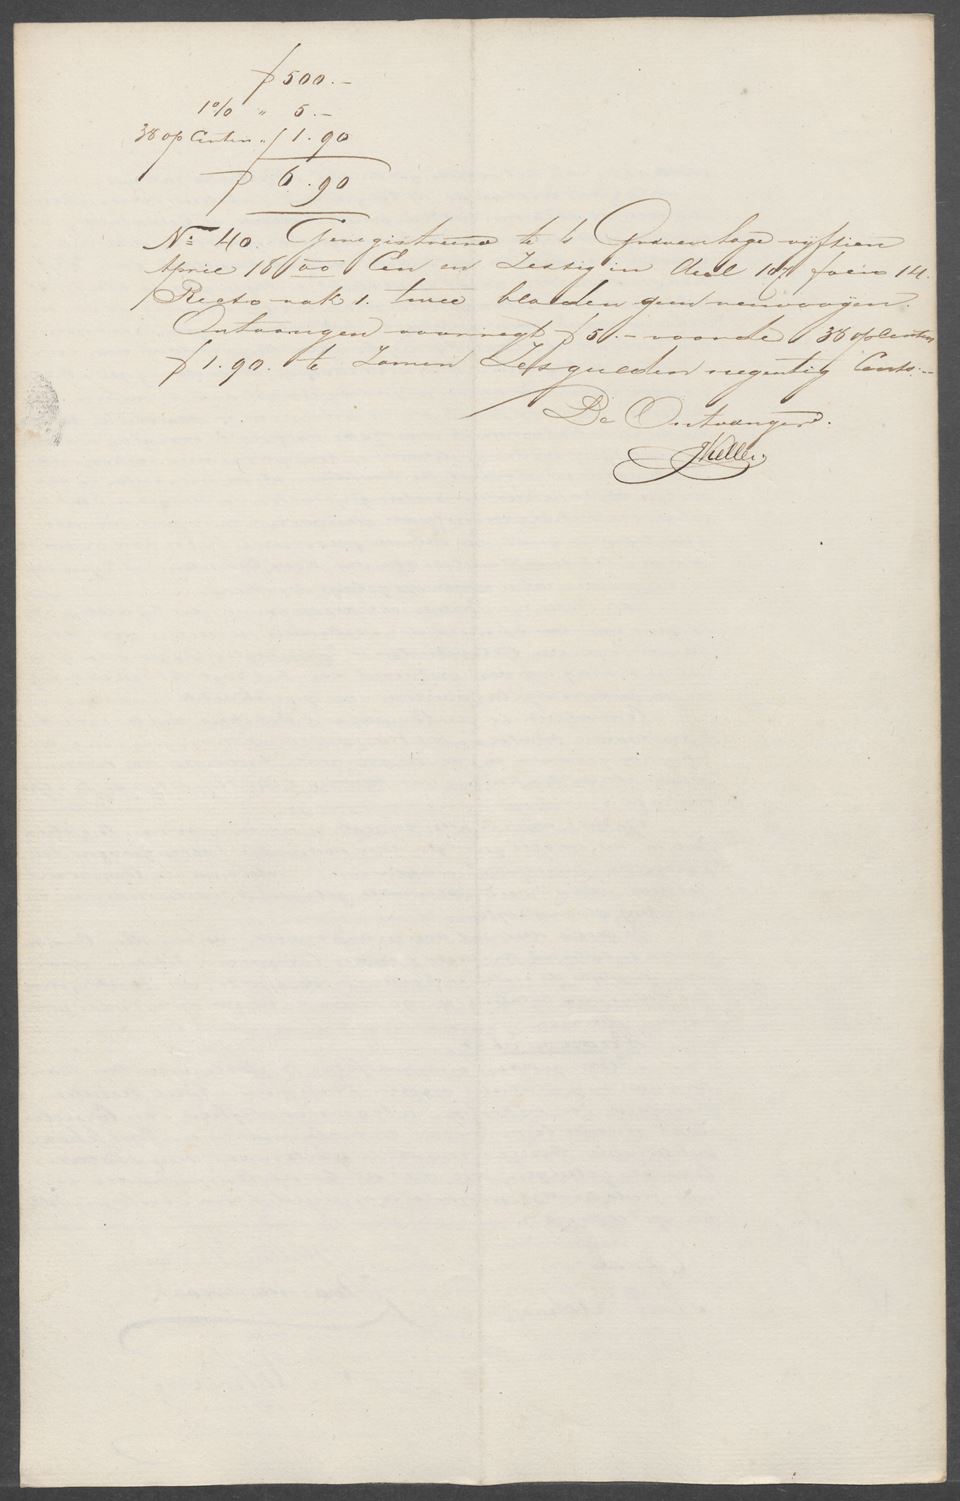 ƒ 500.-
1% " 5.-
38 op Centen " ƒ 1.90
ƒ 6.90
No. 40. Geregistreerd te 's Gravenhage vijftien
April 1800 Een en Zestig in deel 107 folio 14.
Recto vak 1. twee bladen geen renvooijen.
Ontvangen voor regt ƒ 5.- voor de 38 op Centen
ƒ 1.90. te zamen Zes gulden negentig Cents.-
De Ontvanger.
JKeller.